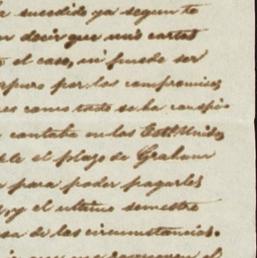 sucedido ya segun te
decir que mis cartas
el caso, ni puede ser
puro por los compromisos
como todo se ha
cantaba en los Est.s Unidos,
el plazo de Graham
para poder pagarles
y el ultimo semestre
sa de las circunstancias.